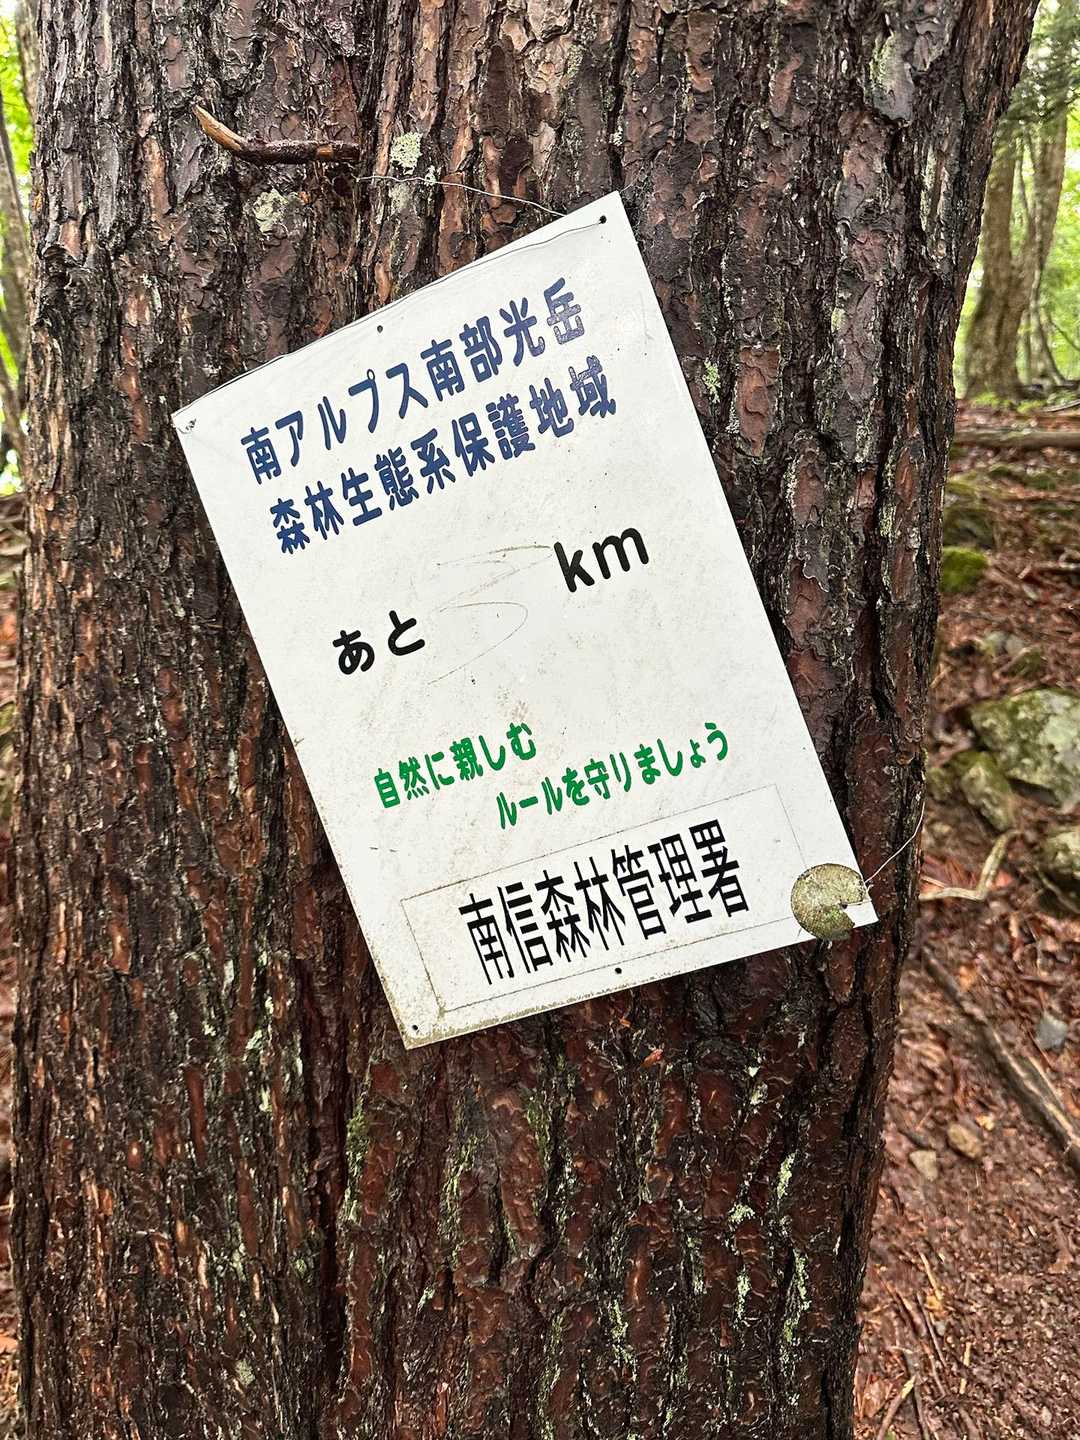 南アルプス南部光岳
森林生態系保護地域
あと km
自然に親しむ
ルールを守りましょう
南信森林管理署